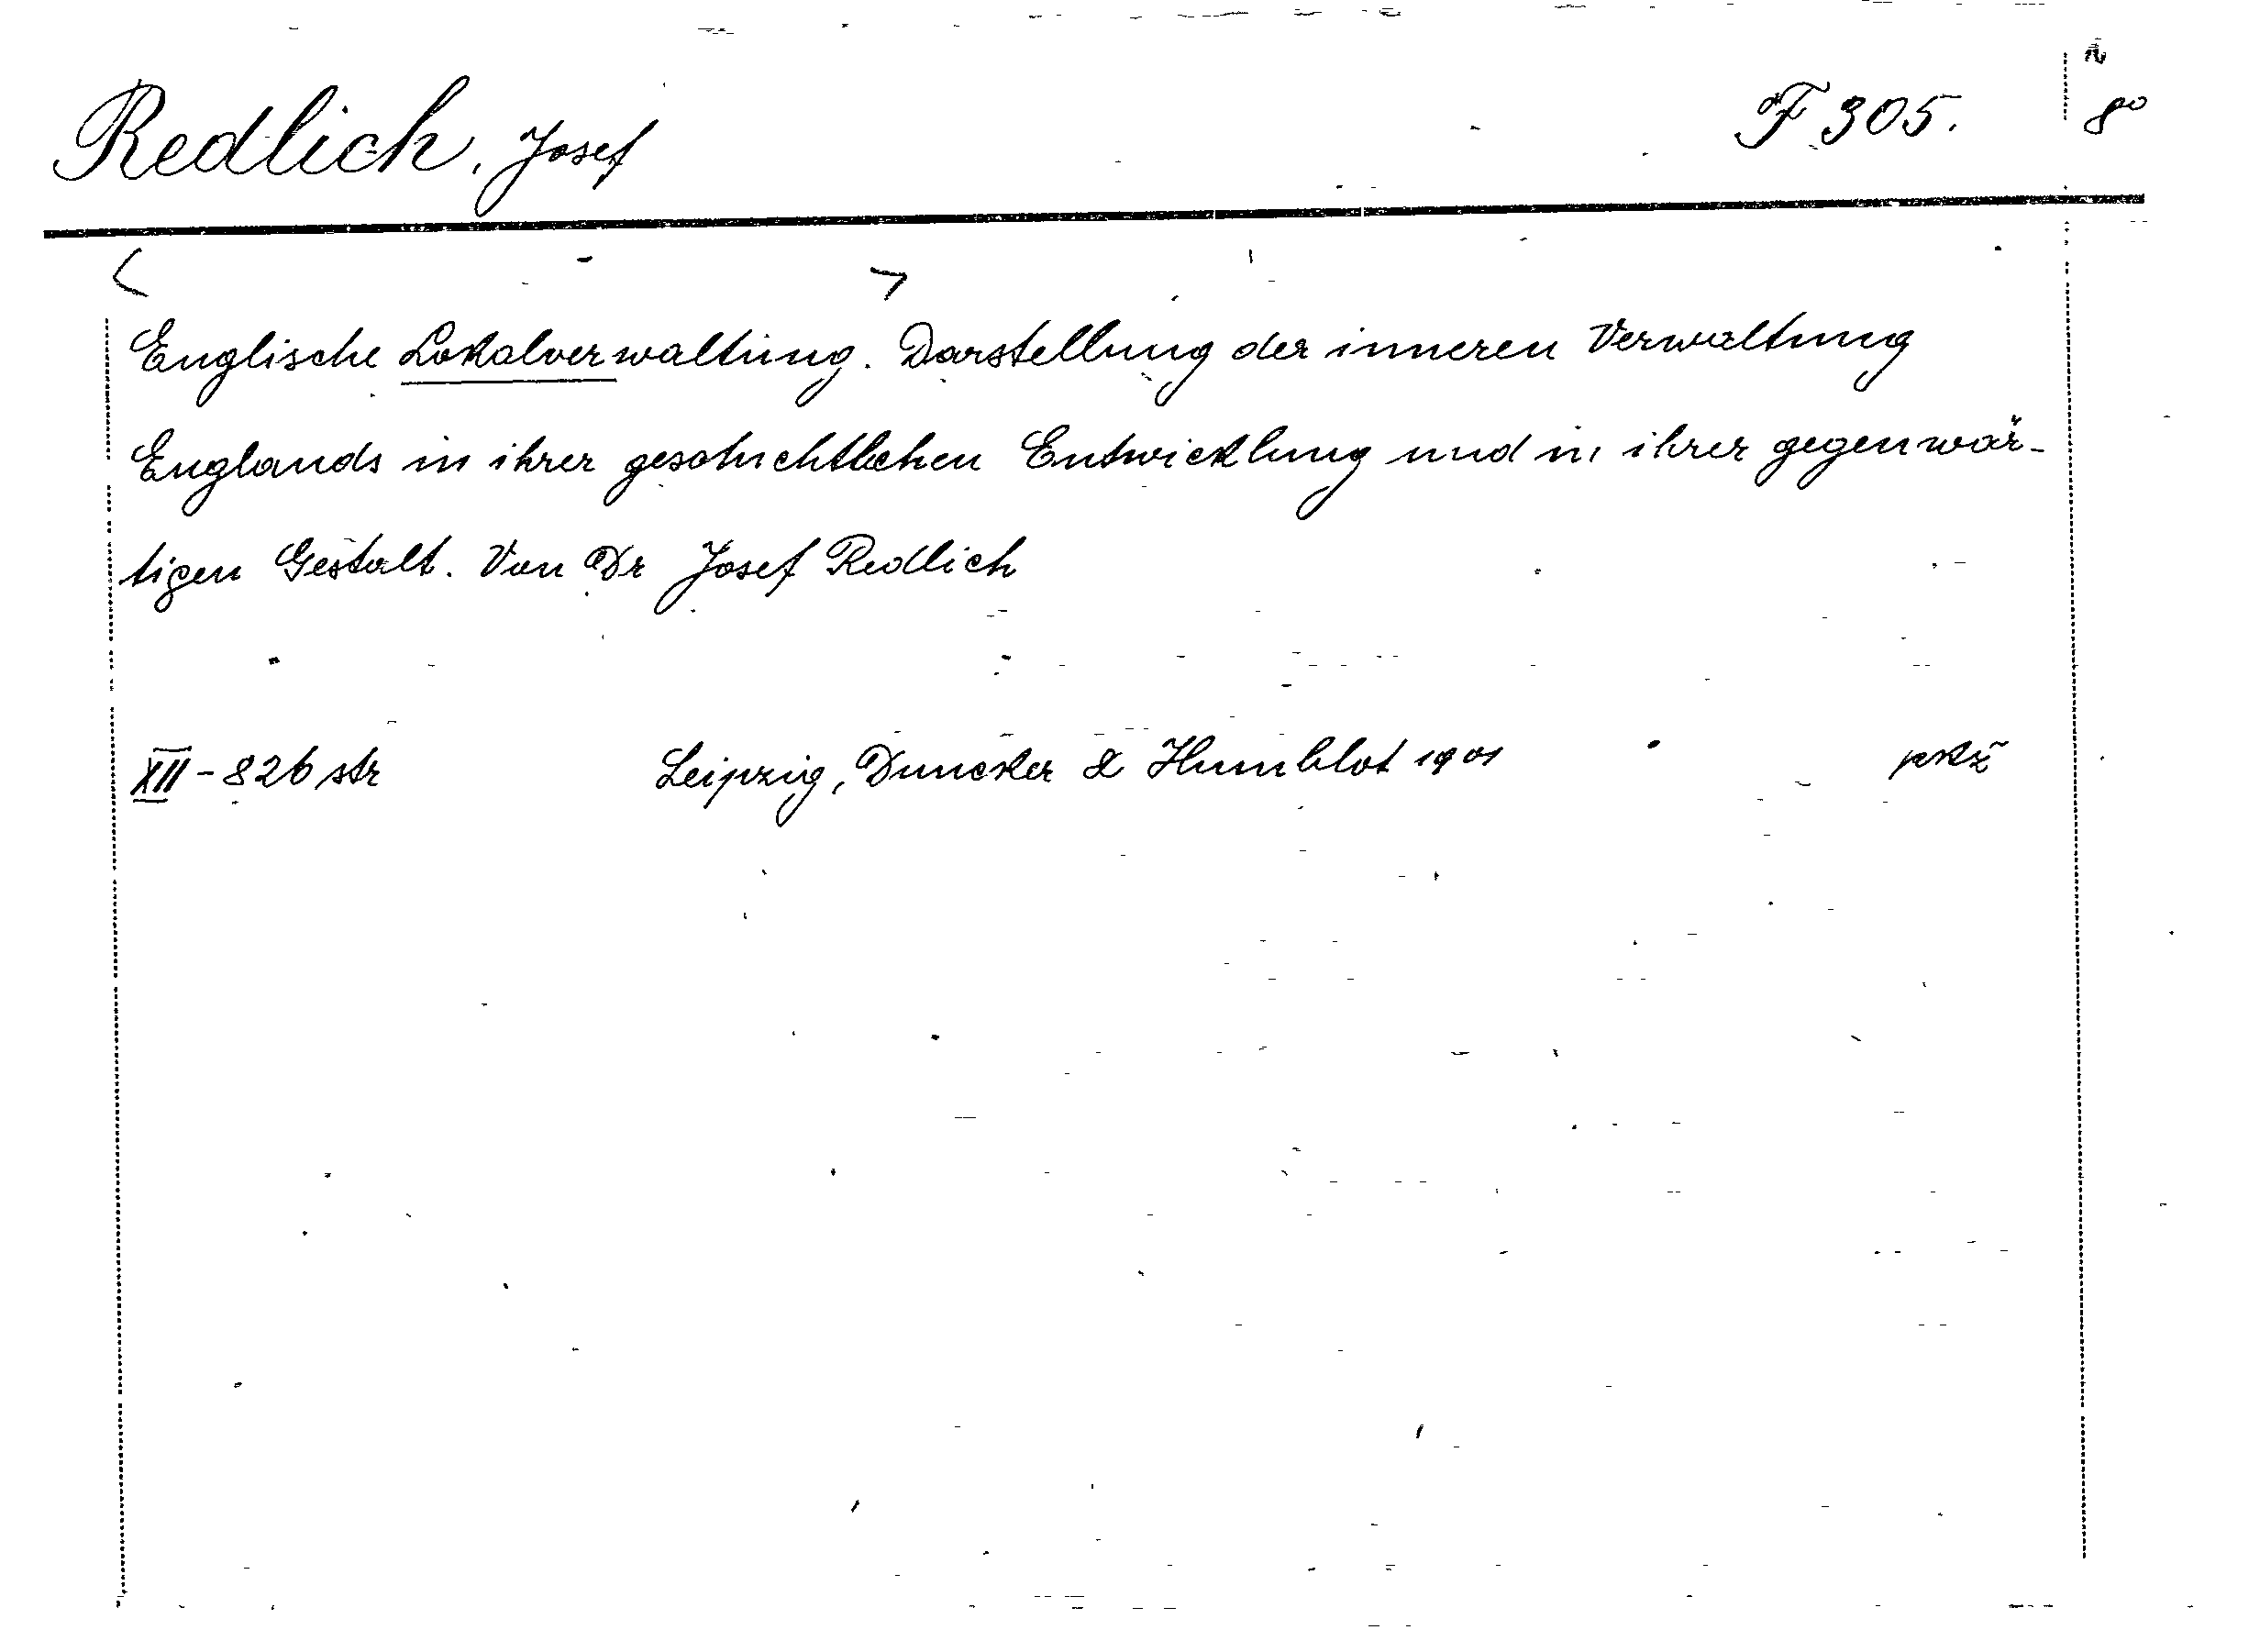 Redlich, Josef F 305. 8°
< >
Englische Lokalverwaltung. Darstellung der inneren Verwaltung
Englands in ihrer geschichtlichen Entwicklung und in ihrer gegenwär-
tigen Gestalt. Von Dr Josef Redlich
XII - 826 str Leipzig, Duncker & Humblot 1901 pkž